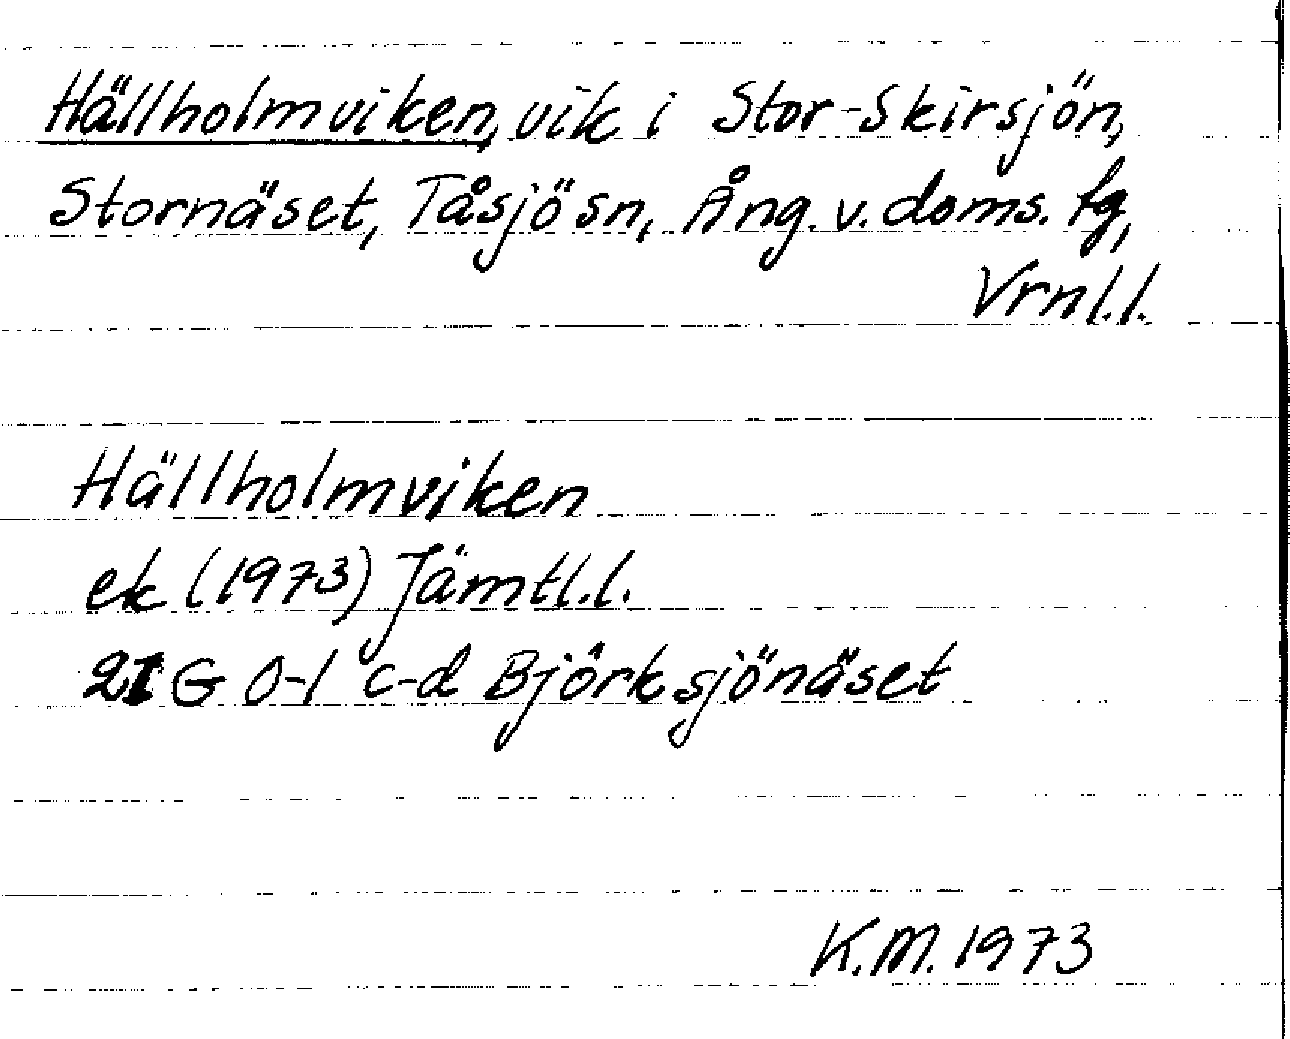 Hällholmviken, vik i Stor-Skirsjön,
Stornäset, Tåsjö sn, Ång. v. doms. fg,
Vrnl.l.
Hällholmviken
ek (1973) Jämtl.l.
21 G 0-1 c-d Björksjönäset
K.M. 1973